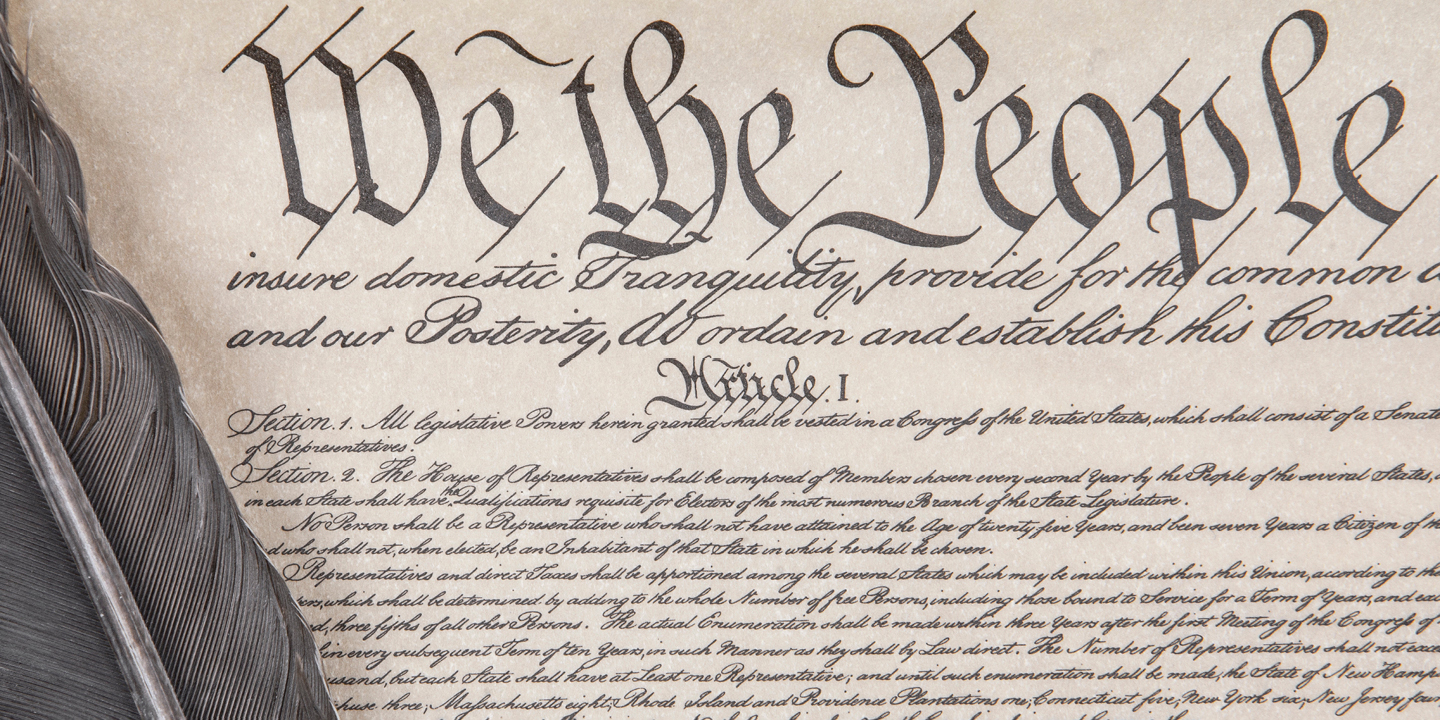 We the People
insure domestic Tranquility, provide for the common
and our Posterity, do ordain and establish this
Article. I.
Section. 1. All legislative Powers herein granted shall be vested in a Congress of the United States, which shall consist of a Senate
of Representatives.
Section. 2. The House of Representatives shall be composed of Members chosen every second Year by the People of the several States,
in each State shall have the Qualifications requisite for Electors of the most numerous Branch of the State Legislature.
No Person shall be a Representative who shall not have attained to the Age of twenty five Years, and been seven Years a Citizen of
who shall not, when elected, be an Inhabitant of that State in which he shall be chosen.
Representatives and direct Taxes shall be apportioned among the several States which may be included within this Union, according to
which shall be determined by adding to the whole Number of free Persons, including those bound to Service for a Term of Years, and
three fifths of all other Persons. The actual Enumeration shall be made within three Years after the first Meeting of the Congress of
in every subsequent Term of ten Years, in such Manner as they shall by Law direct. The Number of Representatives shall not
but each State shall have at Least one Representative; and until such enumeration shall be made, the State of New
three, Massachusetts eight, Rhode Island and Providence Plantations one, Connecticut five, New York six, New Jersey four